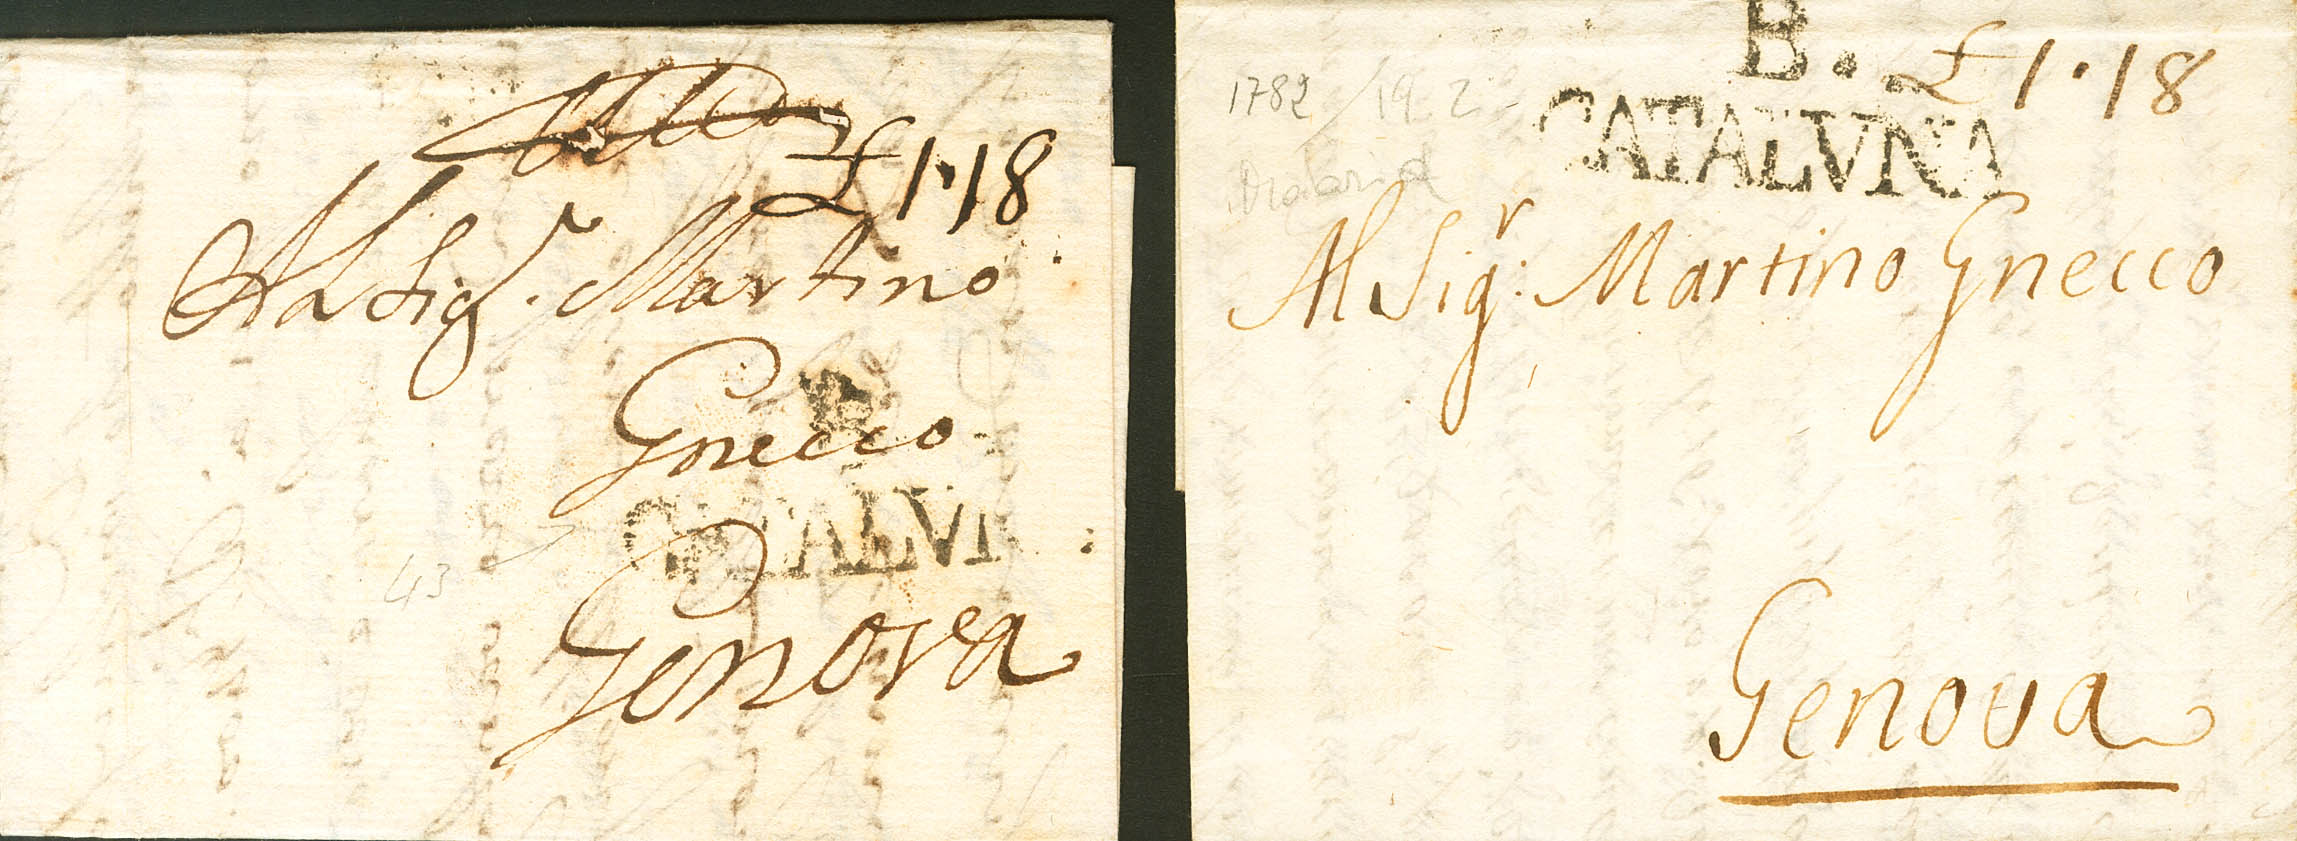 £1·18
Al Sigr. Martino
Gnecco
CATALVÑ
Genova
43
B.
£1·18
1782/19 2
CATALVÑA
Al Sigr: Martino Gnecco
Genova